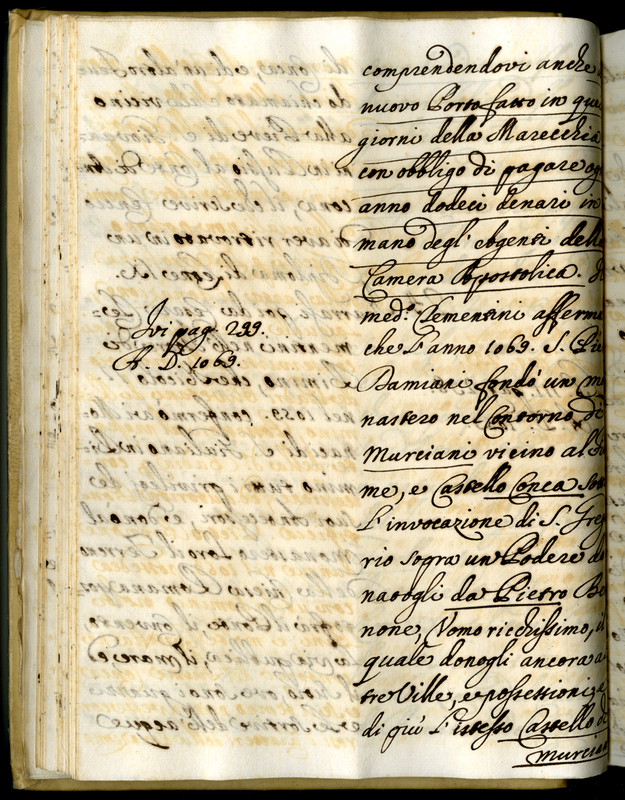 comprendendovi anche
nuovo Porto fatto in que
giorni della Marecchia
con obbligo di pagare og
anno dodeci denari in
mano degl' Agenti dell
Camera Apostolica.
med.º Clementini afferma
che l'anno 1069. S. Pie
Damiani fondò un mo
nastero nel Contorno di
Murciani vicino al
me, e Castello Conca sott
l'invocazione di S. Greg
rio sopra un Podere do
natogli da Pietro Be
none, Uomo ricchissimo, il
quale donogli ancora a
tre Ville, e possessioni, e
di più l'istesso Castello di
Murcian
Ivi pag. 299.
A. D. 1069.